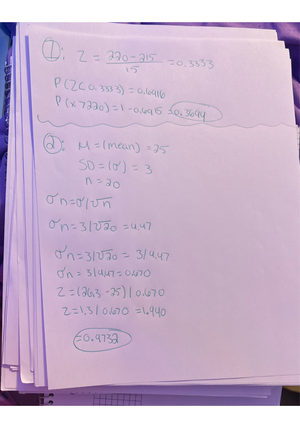 1: Z = 220-215 / 15 = 0.3333
P(Z<0.3333)=0.6916
P(x7220)=1-0.6915=0.3699
2: M = (mean) = 25
SD = (σ) = 3
n = 20
σn = σ/√n
σn = 3/√20 = 4.47
σn = 3/√20 = 3/4.47
σn = 3/4.47 = 0.670
Z = (26.3 - 25)/0.670
Z = 1.3/0.670 = 1.940
= 0.9732